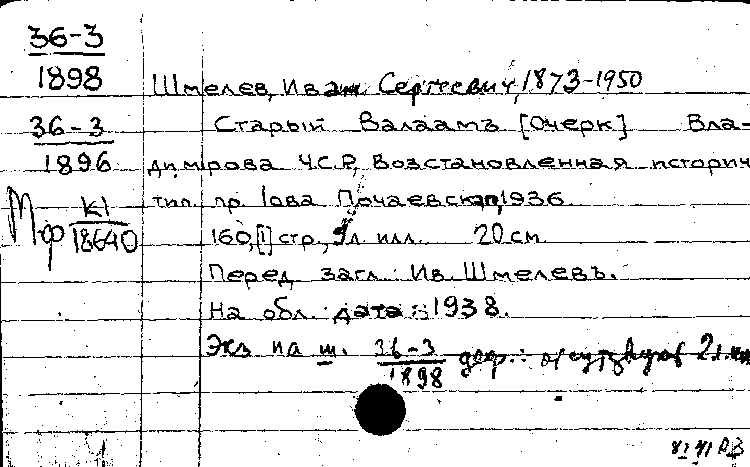 36-3
1898
Шмелев, Иван Сергеевич, 1873-1950
36-3
1896
Старый Валаамъ [Очерк] Вла-
димірова Ч.С.Р., Возстановленная историч
тип. пр. Іова Почаевскаго, 1936
Мф К1
18640
160, [1] стр., 9 л. илл. 20 см.
Перед загл.: Ив. Шмелевъ.
На обл. дата: 1938.
Экз на ш. 36-3
1898 деф.: отсутствуют 2 л. илл